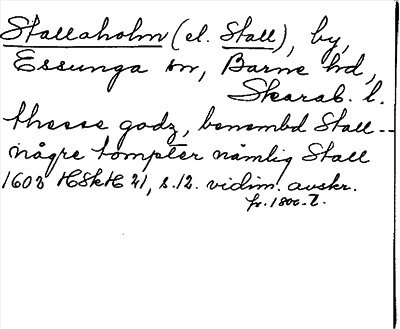 Stallaholm (el. Stall), by,
Essunga sn, Barne hd,
Skarab. l.
thesse godz, benembd Stall --
någre tompter nämlig Stall
1603 HSkH 21, s. 12. vidim. avskr.
fr. 1800-t.